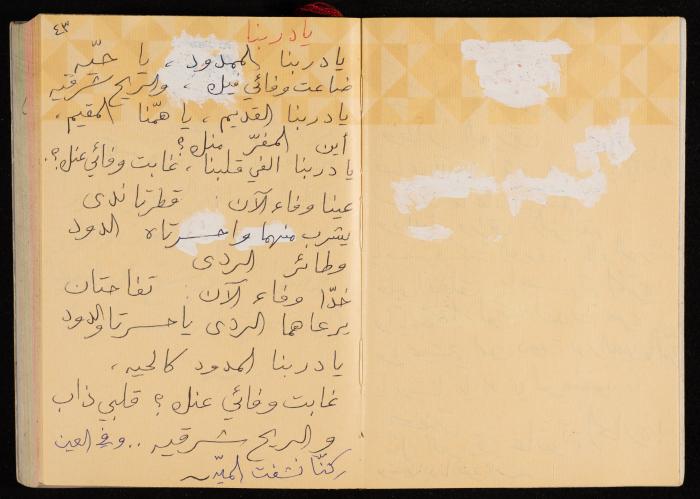 ٤٣
يا دربنا
يا دربنا الممدود ، يا حيّه
ضاعت وفائي فيك ، والريح شرقيه
يا دربنا القديم ، يا همّنا المقيم ،
أين المفرّ منك ؟
يا دربنا الفي قلبنا ، غابت وفائي عنك ؟
عينا وفاء الآن : قطرتا ندى
يشرب منهما واحسرتاه الدود
وطائر الردى
خدّا وفاء الآن : تفاحتان
يرعاهما الردى يا حسرتا والدود
يا دربنا الممدود كالحيه ،
غابت وفائي عنك ؟ قلبي ذاب
والريح شرقيه .. وفي العين
ركنّا نشفت الميّه